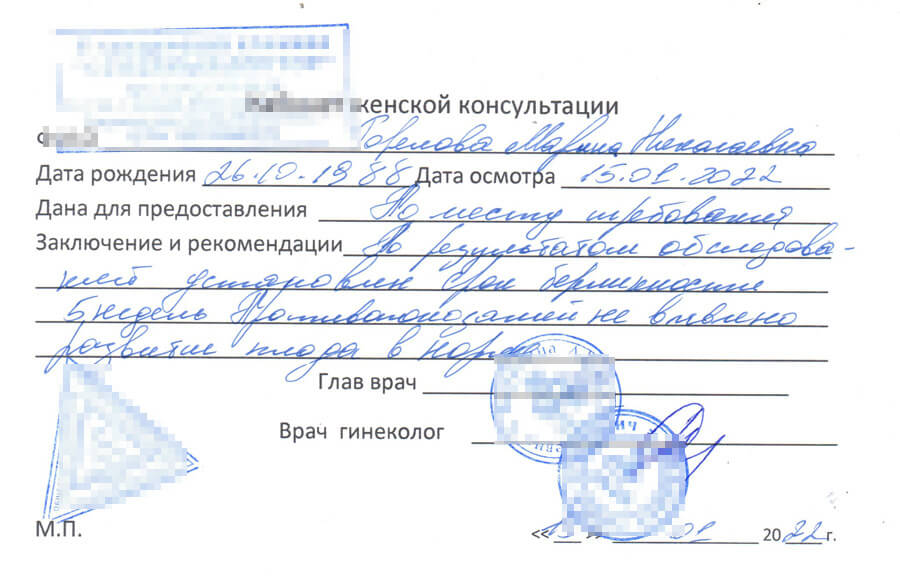 женской консультации
Горелова Марина Николаевна
Дата рождения 26.10.1988 Дата осмотра 15.01.2022
Дана для предоставления По месту требования
Заключение и рекомендации По результатом обследова-
ний установлен срок беременности
5 недель Противопоказаний не вывлено
развитие плода в норме
Глав врач
Врач гинеколог
М.П.
« » 01 2022 г.